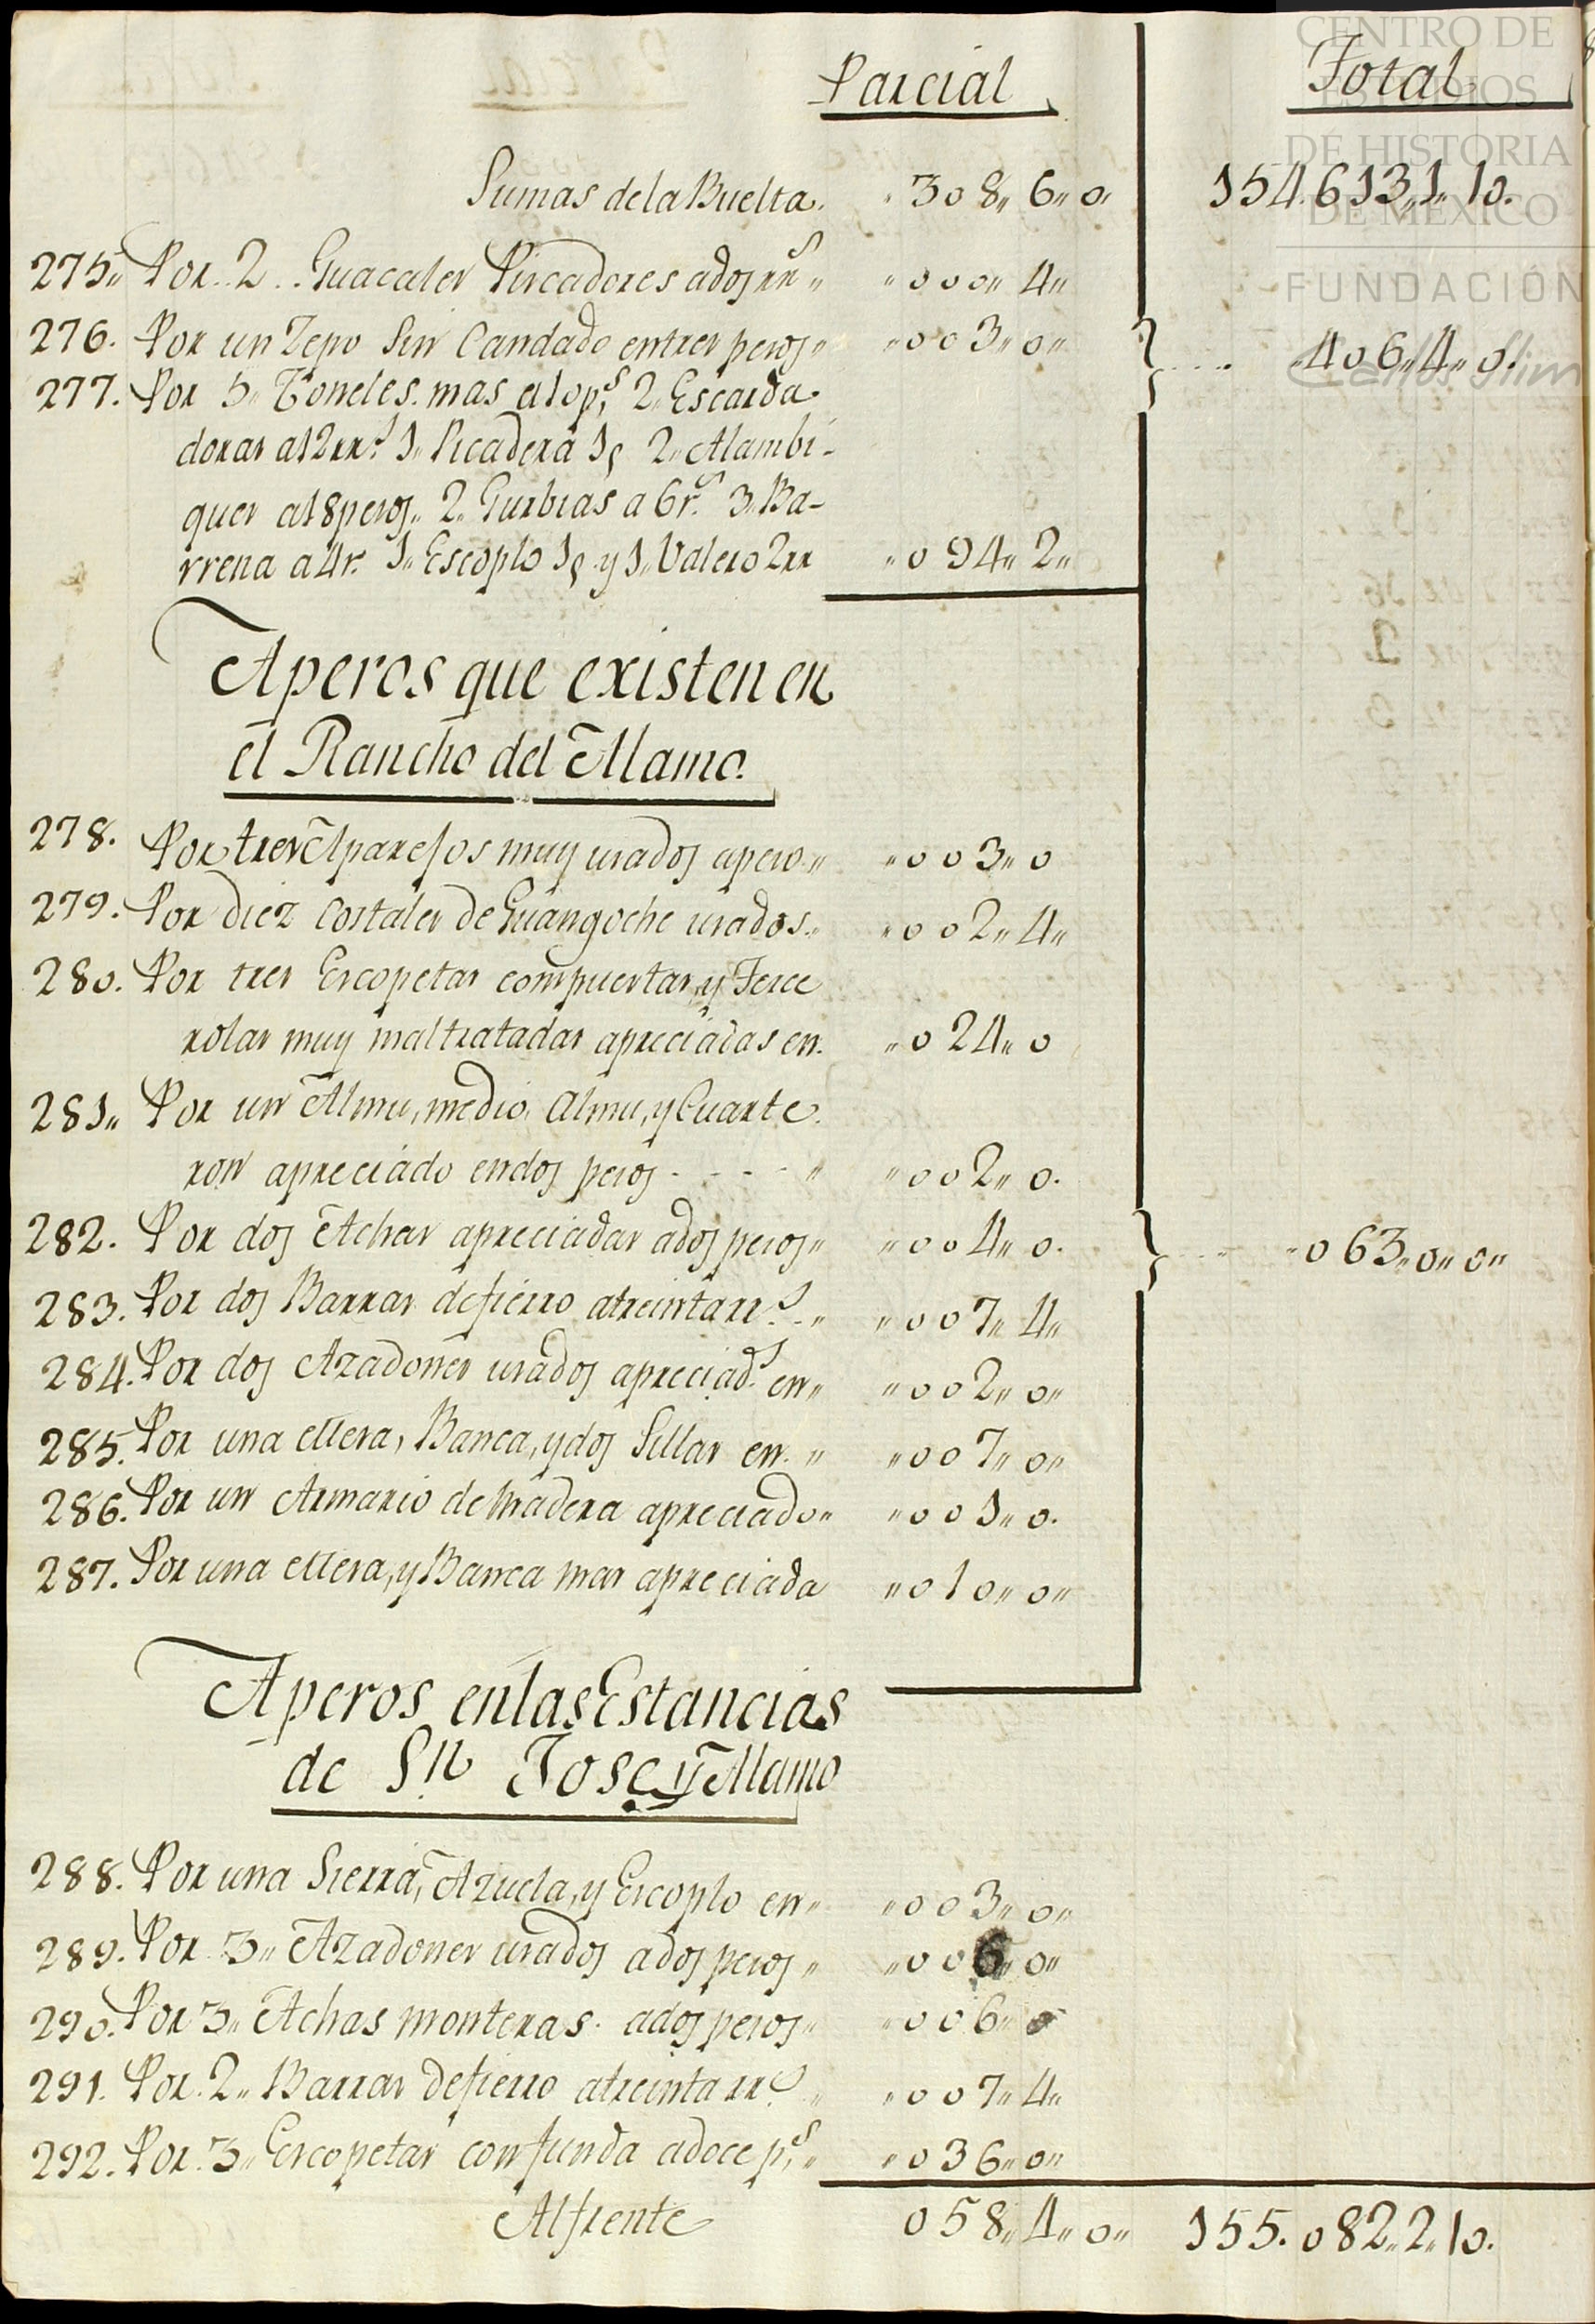 CENTRO DE
ESTUDIOS
DE HISTORIA
DE MEXICO
FUNDACIÓN
Carlos Slim
Parcial Total
Sumas de la Buelta. 308,, 6,, 0,, 154.613,,1,,10.
275,, Por.. 2.. Guacales Piscadores a dos rr.s ,, ,,000,, 4,,
276. Por un Zepo Sin Candado en tres pesos,, ,,003,,0,, 406,,4,,0.
277. Por 5,, Toneles. mas a 10 p.s 2,, Escarda-
doras a 12 rr.s 1,, Picadera 1p 2,, Alambi-
ques a 18 pesos,, 2,, Gurbias a 6 r.s 3,, Ba-
rrena a 4 r. 1,, Escoplo 1p y 1,, Valero 2rr ,,094,, 2,,
Aperos que existen en
el Rancho del Mamo.
278. Por tres Aparejos muy usados a peso,, ,,003,,0
279. Por diez costales de Guangoche usados.. ,,002,,4,,
280. Por tres Escopetas compuestas, y Terce
rolas muy maltratadas apreciadas en. ,,024,,0
281,, Por un Almu, medio Almu, y Cuarte.
ron apreciado en dos pesos - - - - ,, ,,002,,0.
282. Por dos Achas apreciadas a dos pesos,, ,,004,,0. 063,,0,,0,,
283. Por dos Barras de fierro a treinta rr.s ,, ,,007,,4,,
284. Por dos Azadones usados apreciad.s en,, ,,002,,0,,
285. Por una Mesa, Banca, y dos Sillas en.. ,, ,,007,,0,,
286. Por un Armario de Madera apreciado,, ,,001,,0.
287. Por una Mesa, y Banca mas apreciada ,,010,,0,,
Aperos en las Estancias
de S.n Jose, y Mamo
288. Por una Sierra, Azuela, y Escoplo en,, ,,003,,0,,
289. Por 3,, Azadones usados a dos pesos,, ,,006,,0,,
290. Por 3,, Achas monteras. a dos pesos,, ,,006,,0
291. Por. 2,, Barras de fierro a treinta rr.s ,,007,,4,,
292. Por. 3,, Escopetas con funda a doce p.s ,, ,,036,,0,,
Al frente 058,,4,,0,, 155.082,,2,,10.